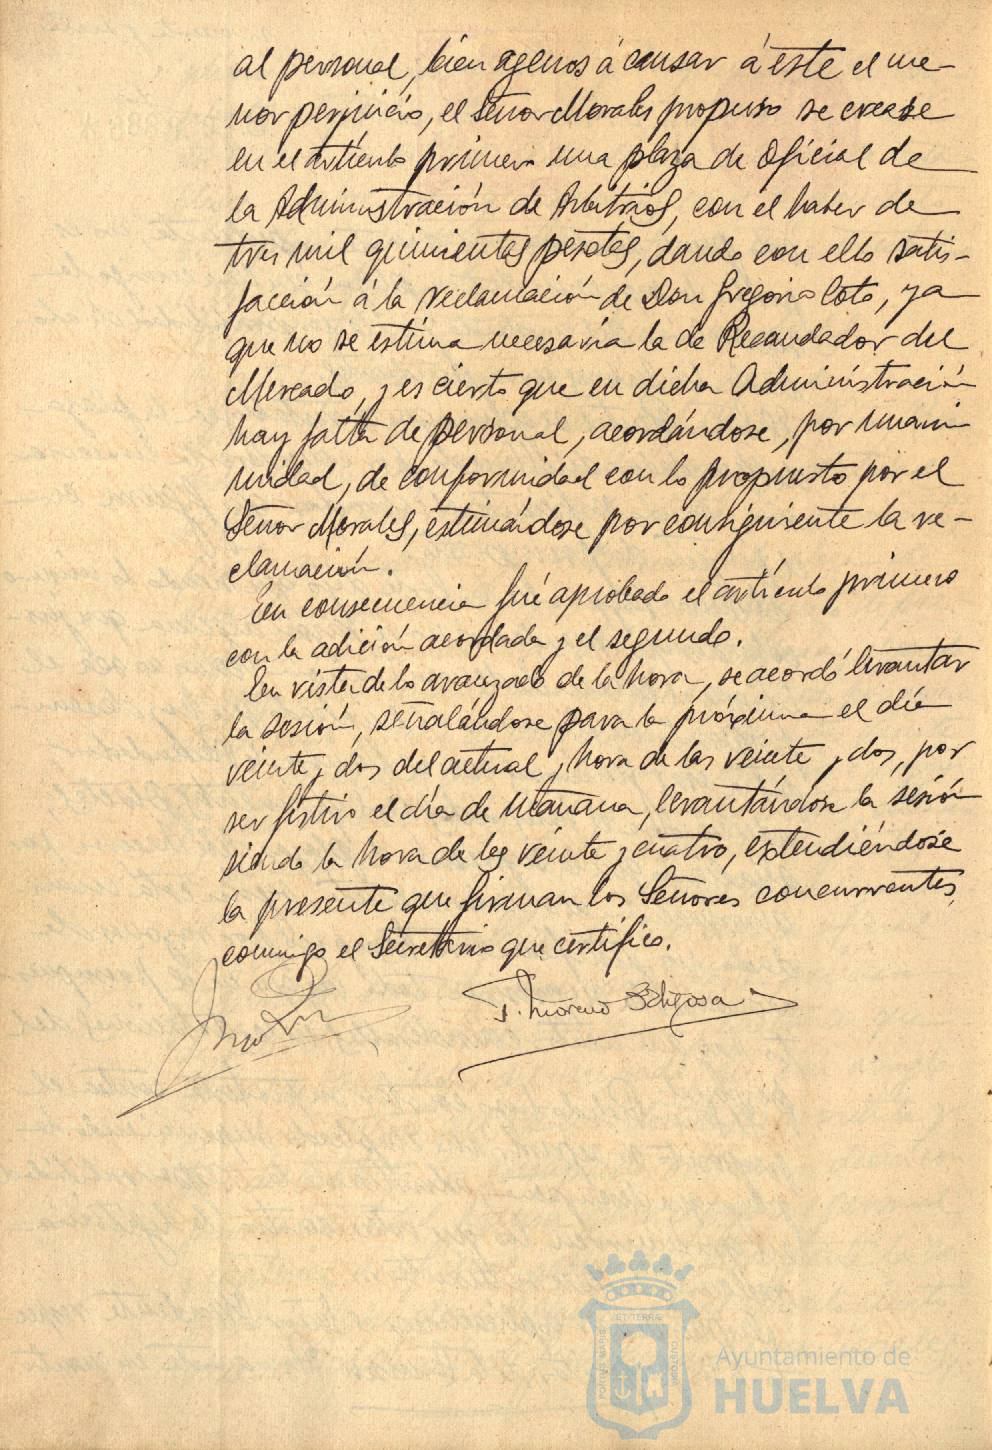 al personal, bien agenos á causar á este el me-
nor perjuicio, el Señor Morales propuso se crease
en el artículo primero una plaza de Oficial de
la Administración de Arbitrios, con el haber de
tres mil quinientas pesetas, dando con ello satis-
facción á la reclamación de Don Gregorio Coto, ya
que no se estima necesaria la de Recaudador del
Mercado, y es cierto que en dicha Administración
hay falta de personal, acordándose, por unani
midad, de conformidad con lo propuesto por el
Señor Morales, estimándose por consiguiente la re-
clamación.
En consecuencia fué aprobado el artículo primero
con la adición acordada y el segundo.
En vista de lo avanzado de la hora, se acordó levantar
la sesión, señalándose para la próxima el día
veinte y dos del actual, hora de las veinte y dos, por
ser festivo el día de mañana, levantándose la sesión
siendo la hora de las veinte y cuatro, extendiéndose
la presente que firman los Señores concurrentes,
conmigo el Secretario que certifico.
P. Moreno
ET TERRÆ
Ayuntamiento de
HUELVA